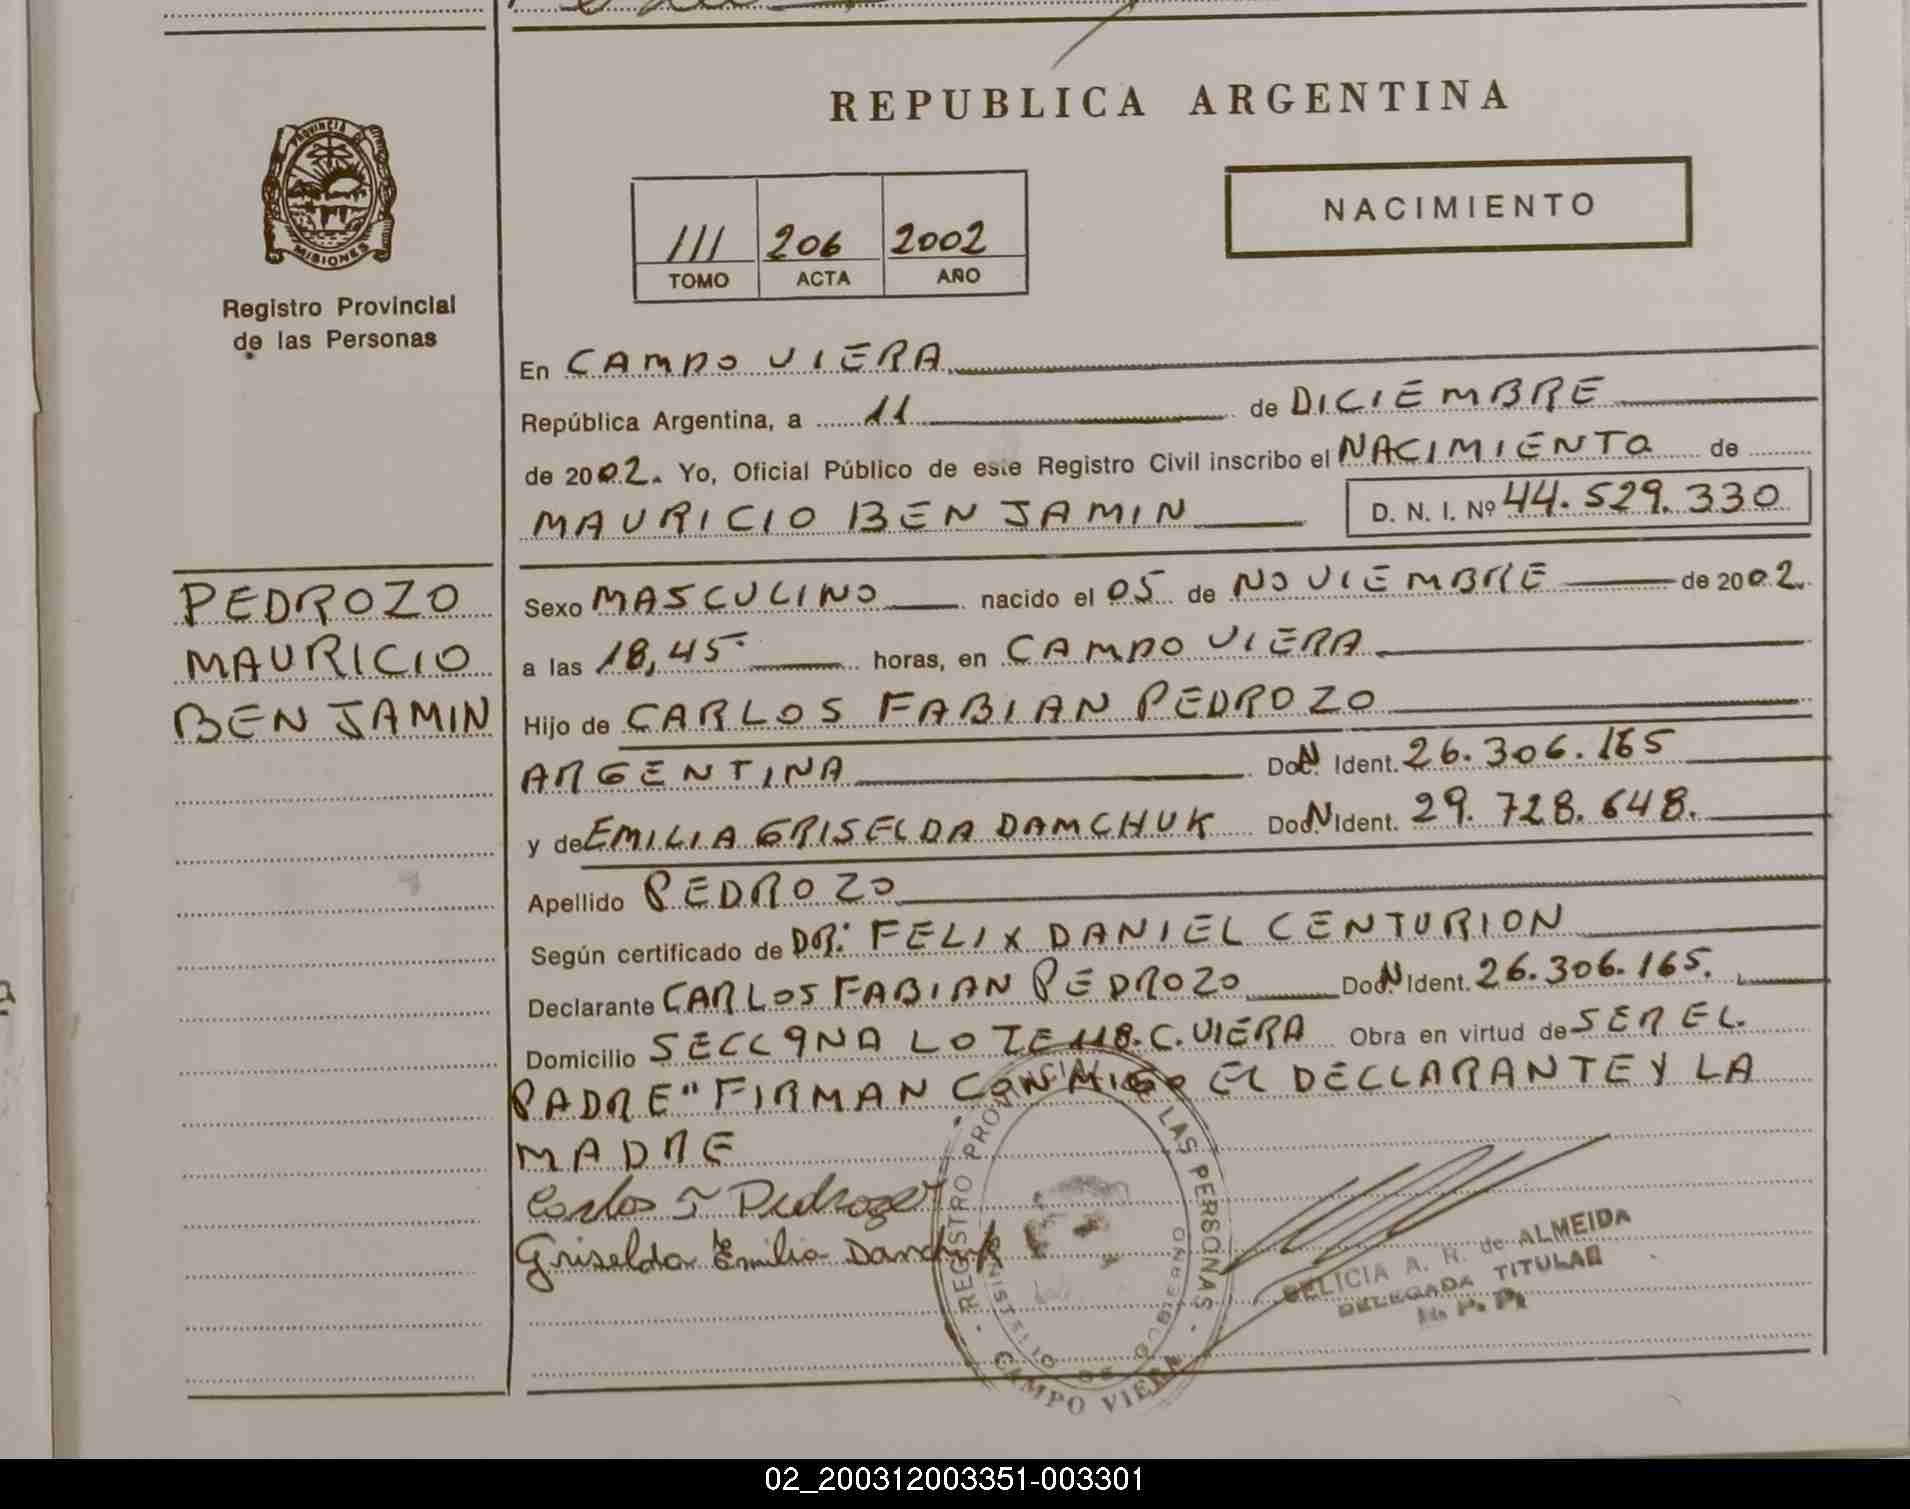 REPUBLICA ARGENTINA
PROVINCIA DE
MISIONES
Registro Provincial
de las Personas
NACIMIENTO
III 206 2002
TOMO ACTA AÑO
En CAMPO VIERA
República Argentina, a 11 de DICIEMBRE
de 2002. Yo, Oficial Público de este Registro Civil inscribo el NACIMIENTO de
MAURICIO BENJAMIN D. N. I. Nº 44.529.330
PEDROZO
MAURICIO
BENJAMIN
Sexo MASCULINO nacido el 05 de NOVIEMBRE de 2002.
a las 18,45 horas, en CAMPO VIERA
Hijo de CARLOS FABIAN PEDROZO
ARGENTINA Doc. N Ident. 26.306.165
y de EMILIA GRISELDA DAMCHUK Doc. N Ident. 29.728.648.
Apellido PEDROZO
Según certificado de DR: FELIX DANIEL CENTURION
Declarante CARLOS FABIAN PEDROZO Doc. N Ident. 26.306.165.
Domicilio SECC 9NA LOTE 118. C. VIERA Obra en virtud de SER EL
PADRE" FIRMAN CONMIGO EL DECLARANTE Y LA
MADRE
Carlos F Pedrozo
Griselda Emilia Damchuk
REGISTRO PROVINCIAL DE LAS PERSONAS
MINISTERIO DE GOBIERNO
CAMPO VIERA
A. R. de ALMEIDA
DELEGADA TITULAR
R. P. P.
02_200312003351-003301